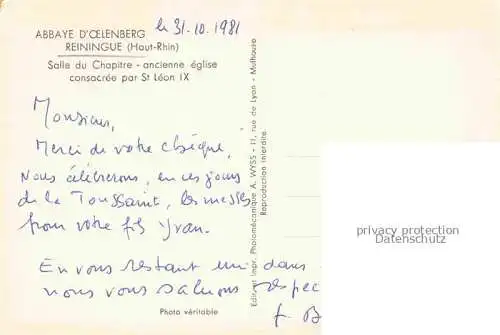 le 31.10.1981
ABBAYE D'ŒLENBERG
REININGUE (Haut-Rhin)
Salle du Chapitre - ancienne église
consacrée par St Léon IX
Monsieur,
Merci de votre chèque.
Nous célébrerons, en ces jours
de la Toussaint, les messes
pour votre fils Yvan.
En vous restant uni dans
nous vous saluons
Photo véritable
Edit. et Impr. Photomécanique A. WYSS - 11, rue de Lyon - Mulhouse
Reproduction interdite
privacy protection
Datenschutz